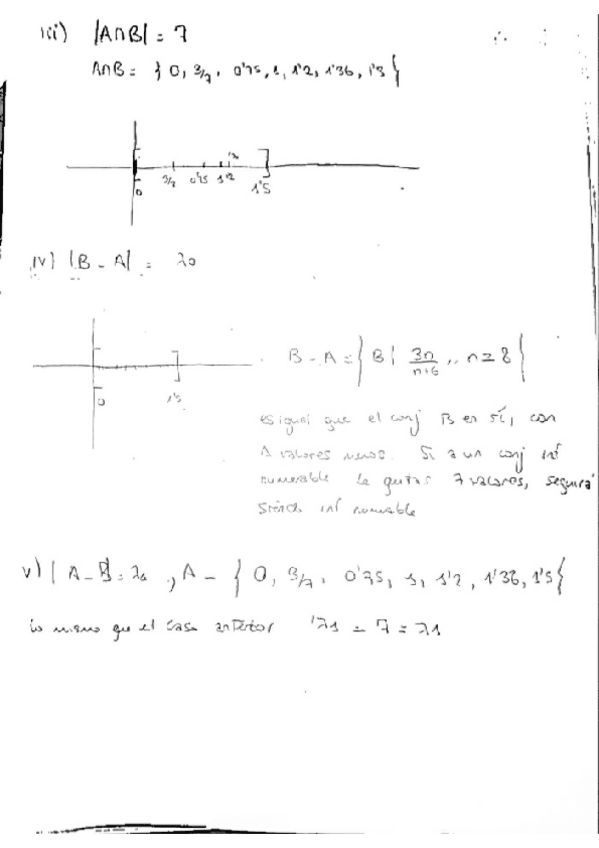 iii) |A∩B| = 7
A∩B = { 0, 3/7, 0'75, 1, 1'2, 1'36, 1'5 }
0 3/7 0'75 1 1'2 1'5
iv) |B - A| =
B - A = { B | 3n/n+6 , n ≥ 8 }
0 1'5
es igual que el conj B en sí, con
valores menos. Si a un conj inf
numerable le quitas 7 valores, seguirá
siendo inf numerable
v) | A - B | = λ1 , A - { 0, 3/7, 0'75, 1, 1'2, 1'36, 1'5 }
lo mismo que el caso anterior λ1 - 7 = λ1